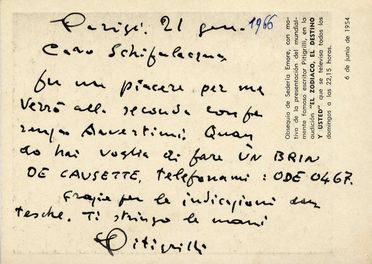 Parigi. 21 gen. 1966
Caro Schifalacqua
fu un piacere per me
Verrò alla seconda confe
renza. Avvertimi. Quan
do hai voglia di fare UN BRIN
DE CAUSETTE, telefonami: ODE 0467.
Grazie per le indicazioni
tesche. Ti stringo le mani
Pitigrilli
Obsequio de Sedería Emare, con mo-
tivo de la presentación del mundial-
mente famoso escritor Pitigrilli, en la
audición "EL ZODIACO, EL DESTINO
Y USTED" que se televisa todos los
domingos a las 22,15 horas.
6 de junio de 1954